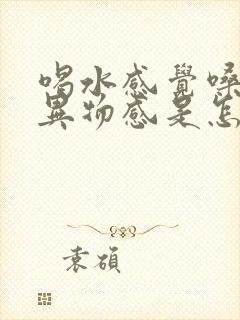 喝水感覺嗓
異物感是怎
袁碩